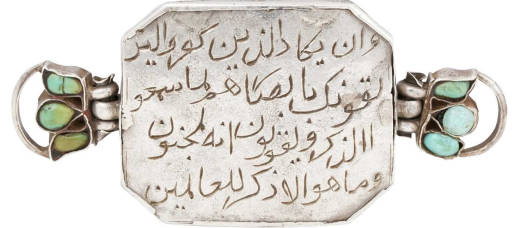 وان يكا دالذين كفروا ليز
لقونك بابصا هم لما سمعو
ا الذكر ويقولون انه لمجنون
وما هو الا ذكر للعالمين